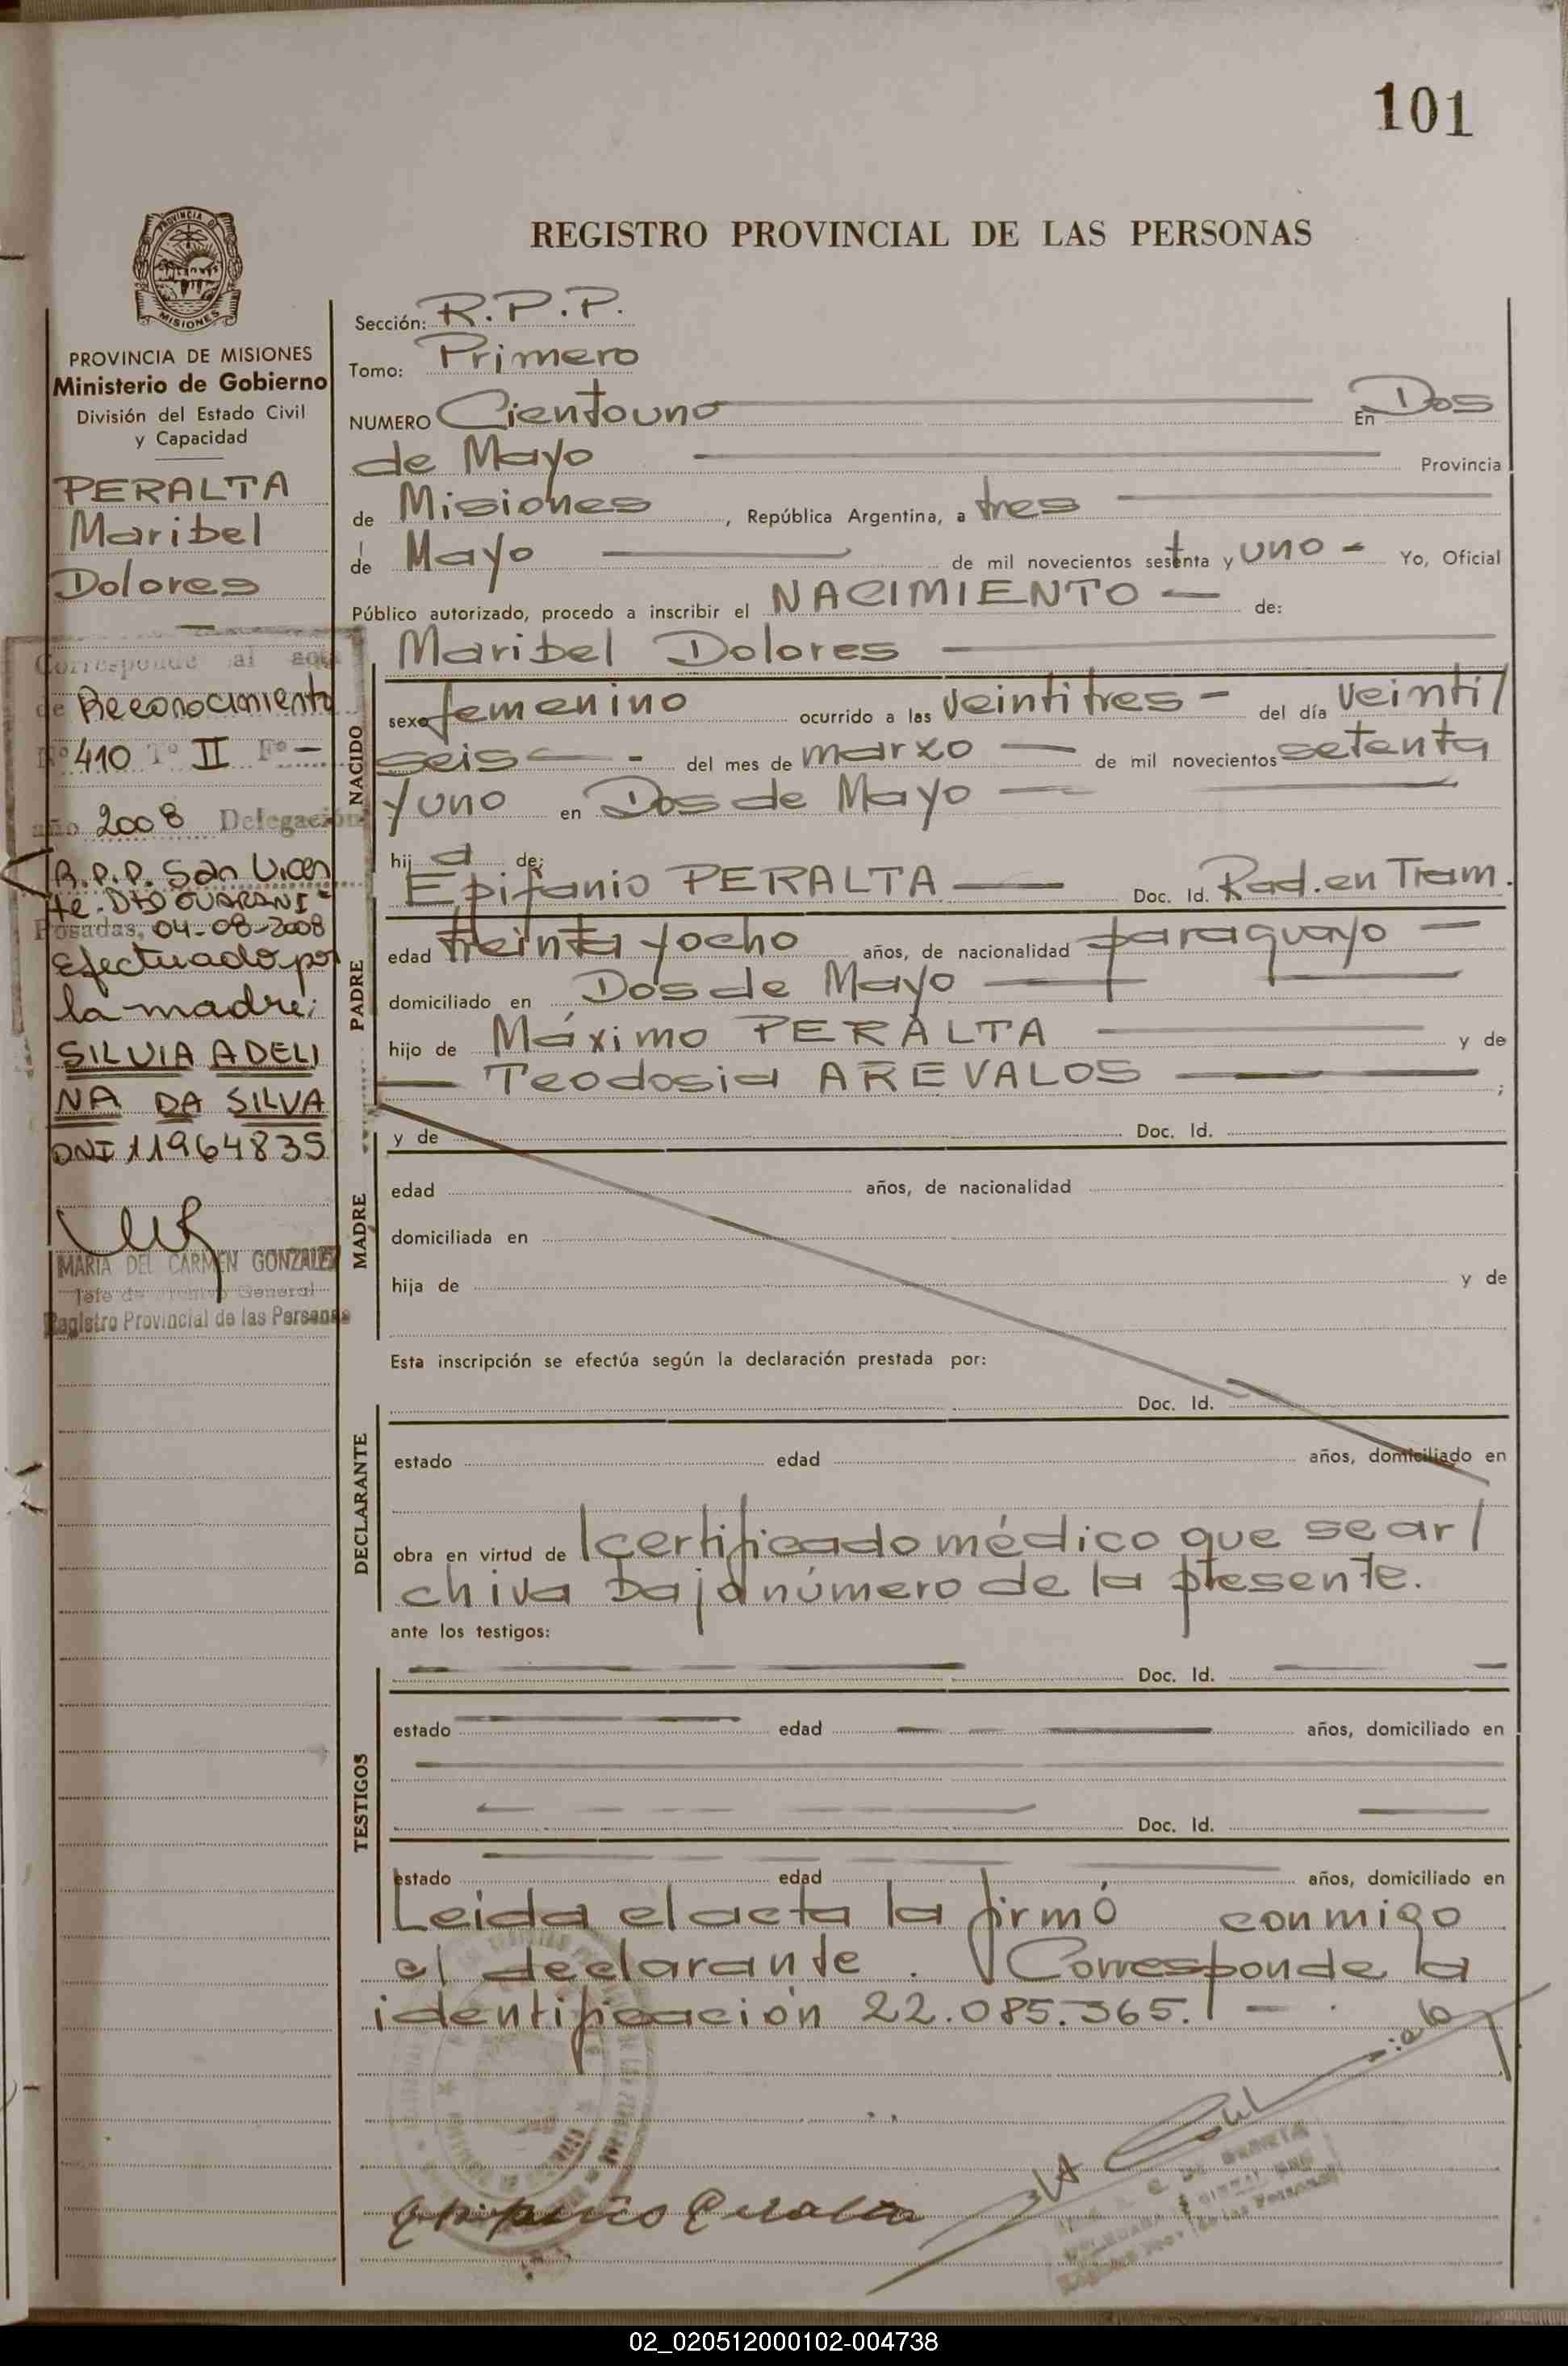 101
REGISTRO PROVINCIAL DE LAS PERSONAS
PROVINCIA DE
MISIONES
PROVINCIA DE MISIONES
Ministerio de Gobierno
División del Estado Civil
y Capacidad
PERALTA
Maribel
Dolores
Corresponde al
de Reconocimiento
Nº 410 Tº II Fº —
año 2008 Delegación
R.P.P. San Vicen
te. DTO GUARANI
Posadas, 04-08-2008
Efectuado por
la madre:
SILVIA ADELI
NA DA SILVA
DNI 11964835
MARIA DEL CARMEN GONZALEZ
Jefe de Archivo General
Registro Provincial de las Personas
Sección: R.P.P.
Tomo: Primero
NUMERO Cientouno En Dos
de Mayo Provincia
de Misiones, República Argentina, a tres
de Mayo de mil novecientos setenta y uno - Yo, Oficial
Público autorizado, procedo a inscribir el NACIMIENTO — de:
Maribel Dolores
NACIDO
sexo femenino ocurrido a las veintitres - del día veinti/
seis - del mes de marzo — de mil novecientos setenta
y uno en Dos de Mayo —
hij a de:
Epifanio PERALTA — Doc. Id. Rad. en Tram.
PADRE
edad treinta y ocho años, de nacionalidad paraguayo —
domiciliado en Dos de Mayo —
hijo de Máximo PERALTA y de
— Teodosia AREVALOS — ;
MADRE
y de Doc. Id.
edad años, de nacionalidad
domiciliada en
hija de y de
Esta inscripción se efectúa según la declaración prestada por:
Doc. Id.
DECLARANTE
estado edad años, domiciliado en
obra en virtud de /certificado médico que se ar/
chiva bajo número de la presente.
ante los testigos:
TESTIGOS
Doc. Id.
estado edad años, domiciliado en
Doc. Id.
estado edad años, domiciliado en
Leida el acta la firmó conmigo
el declarante. Corresponde la
identificación 22.085.365. -
Epifanio Peralta
02_020512000102-004738